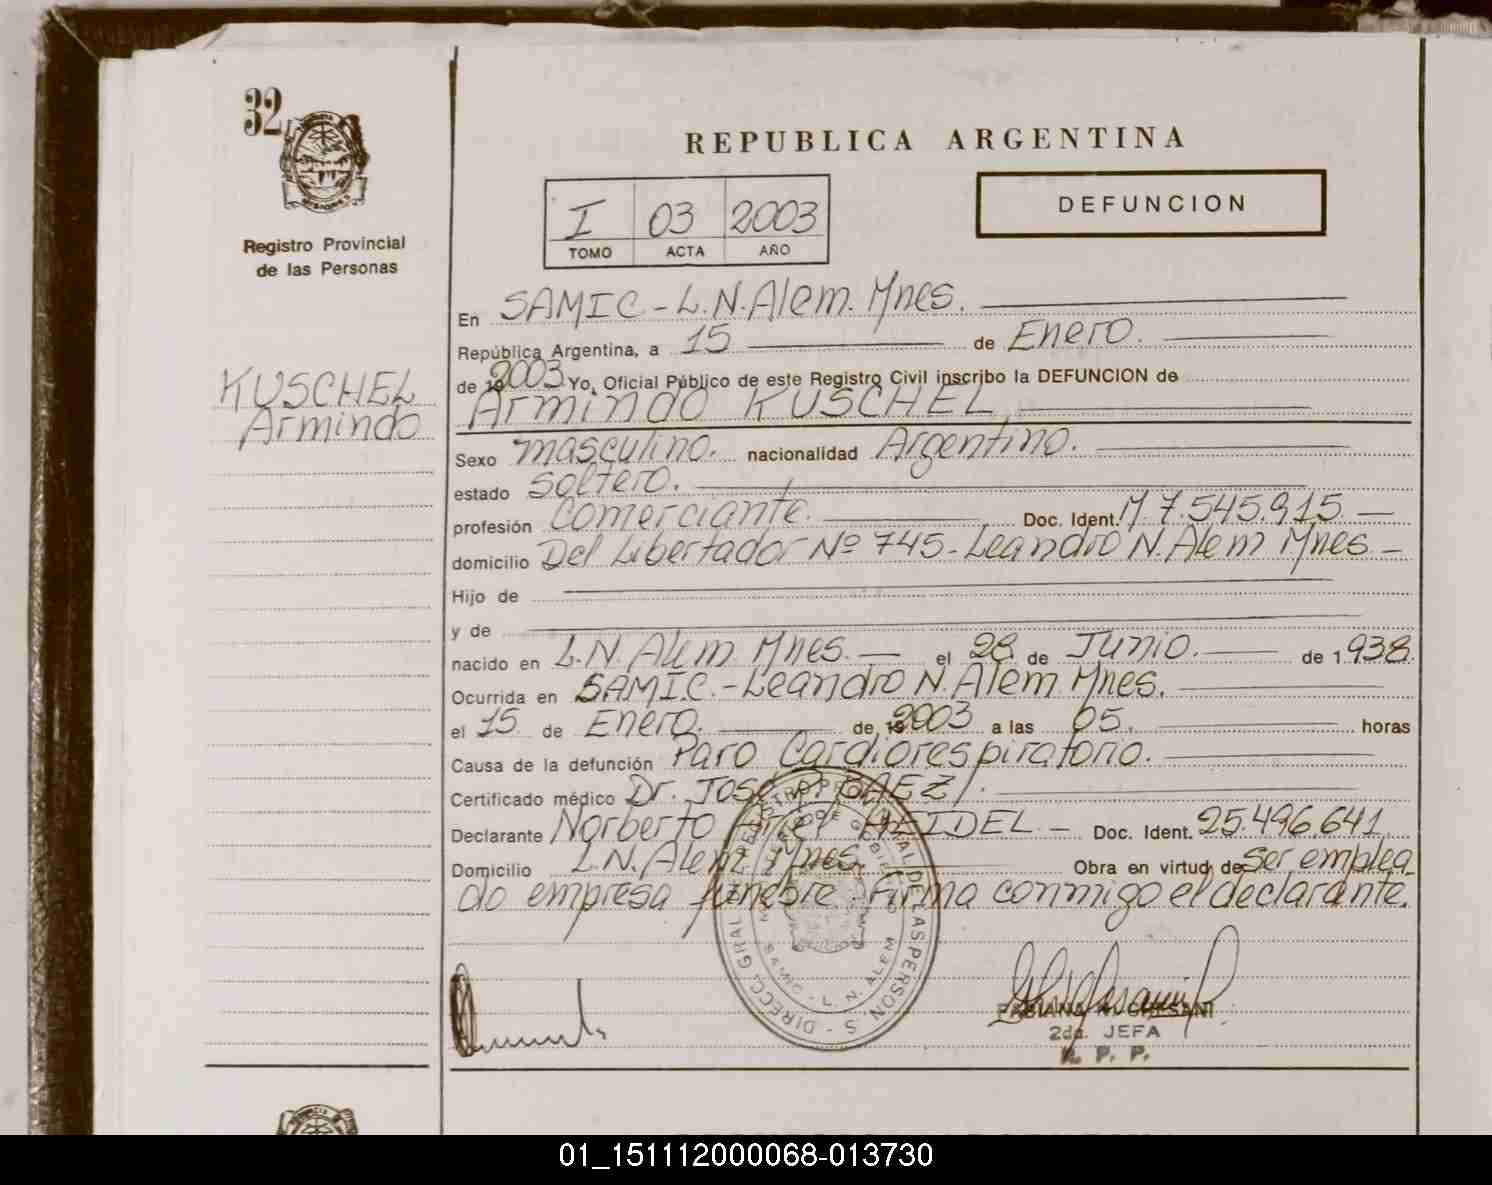 32
Registro Provincial
de las Personas
KUSCHEL
Armindo
REPUBLICA ARGENTINA
DEFUNCION
I 03 2003
TOMO ACTA AÑO
En SAMIC - L.N. Alem. Mnes.
República Argentina, a 15 de Enero.
de 2003 Yo, Oficial Público de este Registro Civil inscribo la DEFUNCION de
Armindo KUSCHEL
Sexo masculino. nacionalidad Argentino.
estado Soltero.
profesión Comerciante. Doc. Ident. M 7.545.915
domicilio Del Libertador Nº 745 - Leandro N. Alem Mnes
Hijo de
y de
nacido en L.N. Alem Mnes. el 28 de Junio. de 1.938.
Ocurrida en SAMIC. - Leandro N. Alem Mnes.
el 15 de Enero. de 2003 a las 05. horas
Causa de la defunción Paro Cardiorespiratorio.
Certificado médico Dr. José BAEZ
Declarante Norberto Ariel HEIDEL - Doc. Ident. 25.496.641
Domicilio L.N. Alem Mnes. Obra en virtud de Ser emplea
do empresa funebre. Firma conmigo el declarante.
DIRECC. GRAL. DEL REGISTRO PROVINCIAL DE LAS PERSONAS
SAMIC - L. N. ALEM
2da. JEFA
R. P. P.
01_151112000068-013730